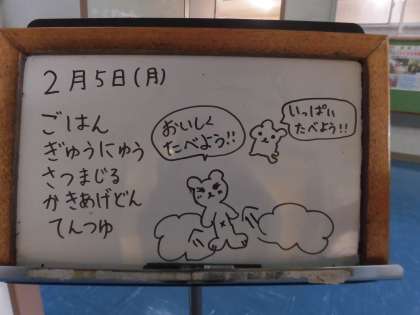 2月5日(月)
ごはん
ぎゅうにゅう
さつまじる
かきあげどん
てんつゆ
おいしく
たべよう!!
いっぱい
たべよう!!